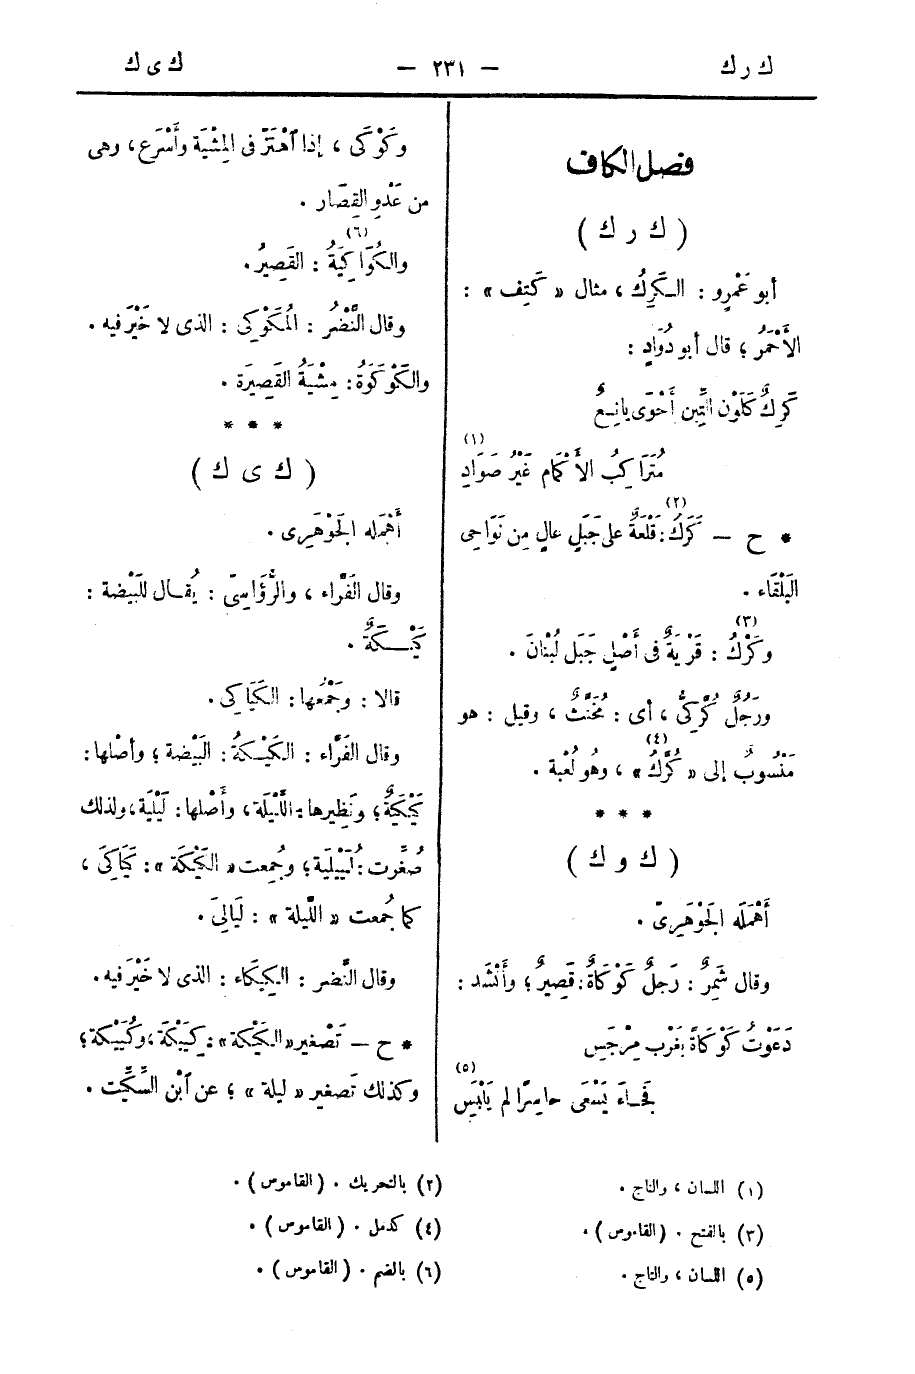 ك ر ك — ٢٣١ — ك ى ك
فصل الكاف
( ك ر ك )
أبو عَمْرٍو : الكَرِكُ ، مثال « كَتِف » :
الأَحْمَرُ ؛ قال أبو دُوَادٍ :
كَرِكٌ كَلَوْنِ التِّينِ أَحْوَى يانِعٌ
مُتَرَاكِبُ الأَكْمَامِ غَيْرُ صَوَادِ (١)
* ح — كَرَكُ (٢) : قَلْعَةٌ على جَبَلٍ عالٍ مِن نَوَاحِى
البَلْقَاء .
وكَرْكُ (٣) : قَرْيَةٌ فى أَصْلِ جَبَلِ لُبْنَانَ .
ورَجُلٌ كُرَّكِىٌّ ، أى : مُخَنَّثٌ ، وقيل : هو
مَنْسُوبٌ إلى « كُرَّكٍ (٤) » ، وهُو لُعْبة .
* * *
( ك و ك )
أَهْمَلَه الجَوْهَرِىّ .
وقال شَمِرٌ : رَجلٌ كَوْكَاةٌ : قَصِيرٌ ؛ وأَنْشَد :
دَعَوْتُ كَوْكَاةً بغَرْبٍ مِرْجَسِ
فَجَاءَ يَسْعَى حاسِرًا لم يَلْبَسِ (٥)
وكَوْكَى ، إذا آهْتَزّ فى المِشْيَة وأَسْرَع ، وهى
من عَدْوِ القِصَار .
والكُوَّاكِيَةُ (٦) : القَصِيرُ .
وقال النَّضْرُ : المُكَوْكِى : الذى لا خَيْرَ فيه .
والكَوْكَوَةُ : مِشْيَةُ القَصِيرَة .
* * *
( ك ى ك )
أَهْمَله الجَوْهَرِى .
وقال الفَرّاء ، والرُّؤَاسِىّ : يُقال للبَيْضة :
كَيْكَةٌ .
قالا : وجَمْعُها : الكَيَاكِى .
وقال الفَرَّاء : الكَيْكةُ : البَيْضة ؛ وأصْلها :
كَيْكَيَةٌ ؛ ونَظِيرها : اللَّيْلَة ، وأَصْلها : لَيْلَيَة ، ولذلك
صُغِّرت : لُيَيْلِيَة ؛ وجُمِعت « الكَيْكَة » : كَيَاكِىَ ،
كما جُمعت « اللَّيلة » : لَيَالِىَ .
وقال النَّضر : الكِيكَاء : الذى لا خَيْرَ فيه .
* ح — تَصْغِير « الكَيْكَة » : كِيَيْكَة ، وكُيَيْكة ؛
وكذلك تَصغير « ليلة » ؛ عن آبْن السِّكِّيت .
(١) اللسان ، والتاج .
(٢) بالتحريك . (القاموس) .
(٣) بالفتح . (القاموس) .
(٤) كدمل . (القاموس) .
(٥) اللسان ، والتاج .
(٦) بالضم . (القاموس) .